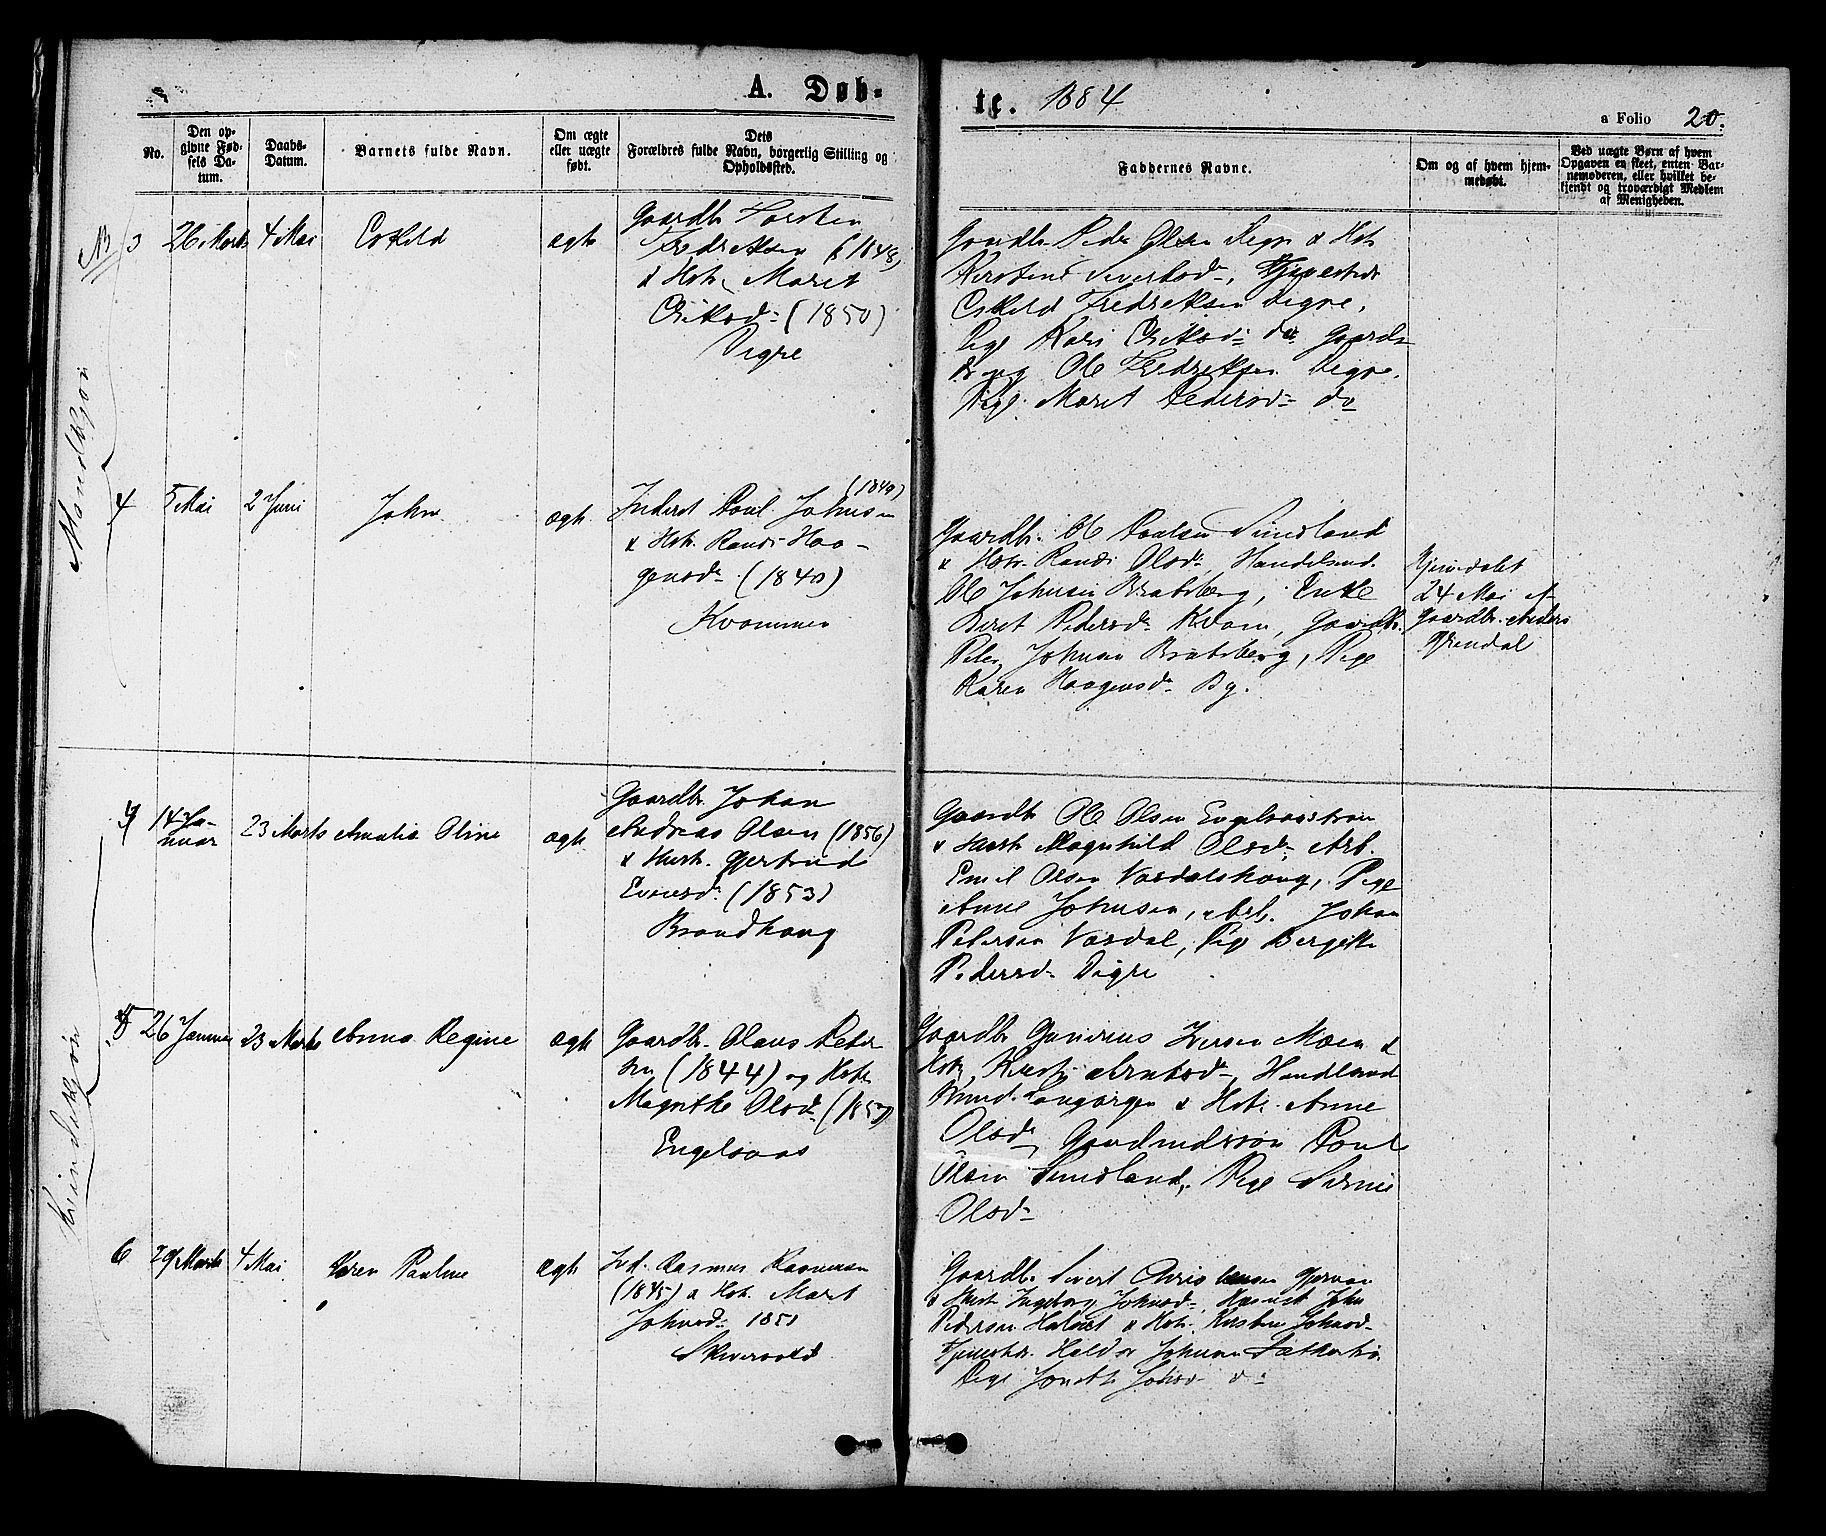 A. Døb-
te. 1884
a Folio 20.
No.
Den opgivne Fødsels Datum.
Daabs-Datum.
Barnets fulde Navn.
Om ægte eller uægte født.
Dets Forældres fulde Navn, borgerlig Stilling og Opholdssted.
Faddernes Navne.
Om og af hvem hjemmedøbt.
Ved uægte Børn af hvem Opgaven en skeet, enten Barnemoderen, eller hvilket bekjendt og troværdigt Medlem af Menigheden.
Mandkjøn
3 26 Marts 4 Mai Eskild ægte
Gaardbr. Torsten
Fredriksen (1848)
& Hstr. Marit
Eriksd. (1850)
Digre
Gaardbr. Peder Olsen Digre & Hstr
Kirstine Sivertsd.,
Eskild Fredriksen Digre,
Pige Kari Eriksd. do. Gaard-
br Ole Fredriksen Digre,
Pige Marit Pedersd. do
4 5 Mai 2 Juni John ægte
(1840)
Inderst Poul Johnsen
& Hstr. Randi Haa-
gensd. (1840)
Kvammen
Gaardbr. Ole Paalsen Sundland
& Hstr. Randi Olsd., Handelsmd.
Ole Johnsen Bratsberg, Enke
Beret Pedersd. Kvam, Gaardbr.
Peter Johnsen Bratsberg, Pige
Karen Haagensd. By.
Hjemdøbt
24 Mai af
Gaardbr. Anders
Kvindekjøn
4 14 Ja-
nuar 23 Marts Amalia Oline ægte
Gaardbr. Johan
Andreas Olsen (1856)
& Hustr. Gjertrud
Evensd. (1853)
Brandhaug
Gaardbr Ole Olsen Engelsaastrøen
& Hustr Magnhild Olsd., Arb.
Emil Olsen Vardalshaug, Pige
Anne Johnsen, Arb. Johan
Petersen Vardal, Pige Bergitte
Pedersd. Digre
5 26 Januar 23 Marts Anna Regine ægte
Gaardbr. Olaus Peter
sen (1844) og Hstr
Magritte Olsd.
Engelsaas
Gaardbr Gunerius Iversen Moen &
Hstr. Kirsti Arntsd.,
Langørgen & Hstr. Anne
Olsd., Gaardmandssøn Poul
Olsen Sundland, Pige
Olsd.
6 29 Marts 4 Mai Karen Pauline ægte
Ind. Rasmus Rasmussen
(1845) & Hstr. Marit
Johnsd. 1851
Skjervold
Gaardbr. Sivert Christensen
& Hustr Ingeborg Johnsd. Husmd John
Pedersen & Hstr. Kirsten Johnsd.
Tjenestdr. Haldor Johnsen
Pige Johnsd do